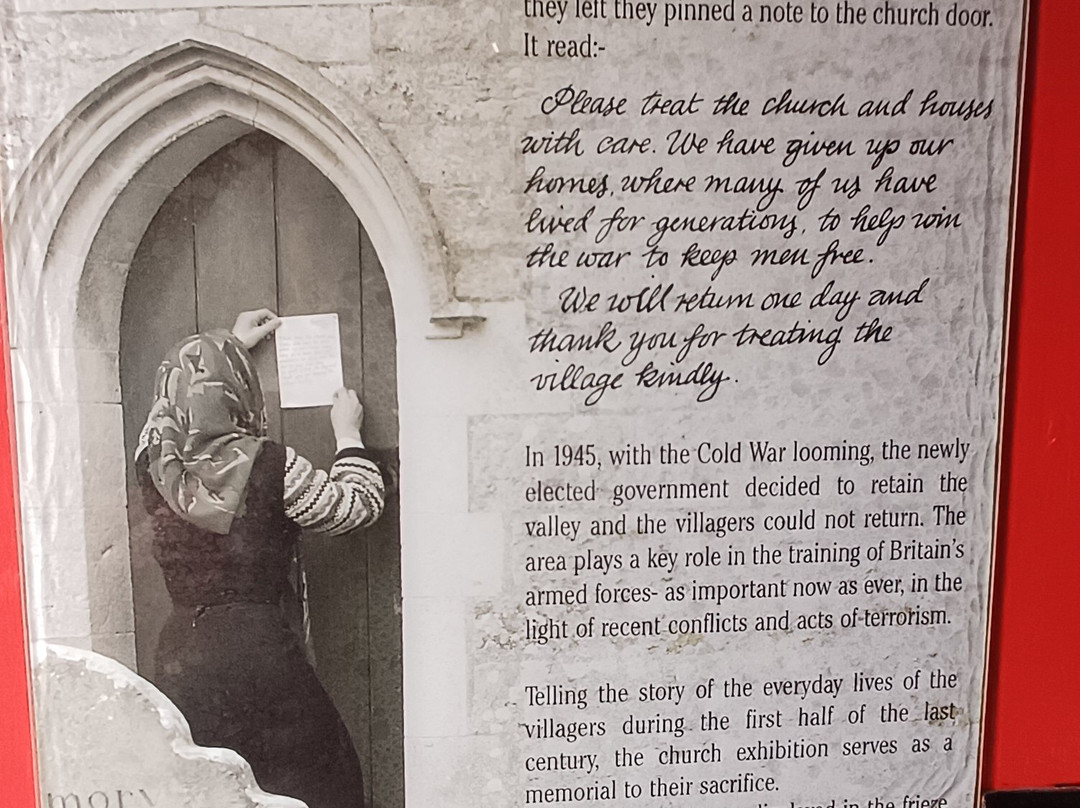 they left they pinned a note to the church door.
It read:-
Please treat the church and houses
with care. We have given up our
homes, where many of us have
lived for generations, to help win
the war to keep men free.
We will return one day and
thank you for treating the
village kindly.
In 1945, with the Cold War looming, the newly
elected government decided to retain the
valley and the villagers could not return. The
area plays a key role in the training of Britain's
armed forces- as important now as ever, in the
light of recent conflicts and acts of terrorism.
Telling the story of the everyday lives of the
villagers during the first half of the last
century, the church exhibition serves as a
memorial to their sacrifice.
in the frieze
mory